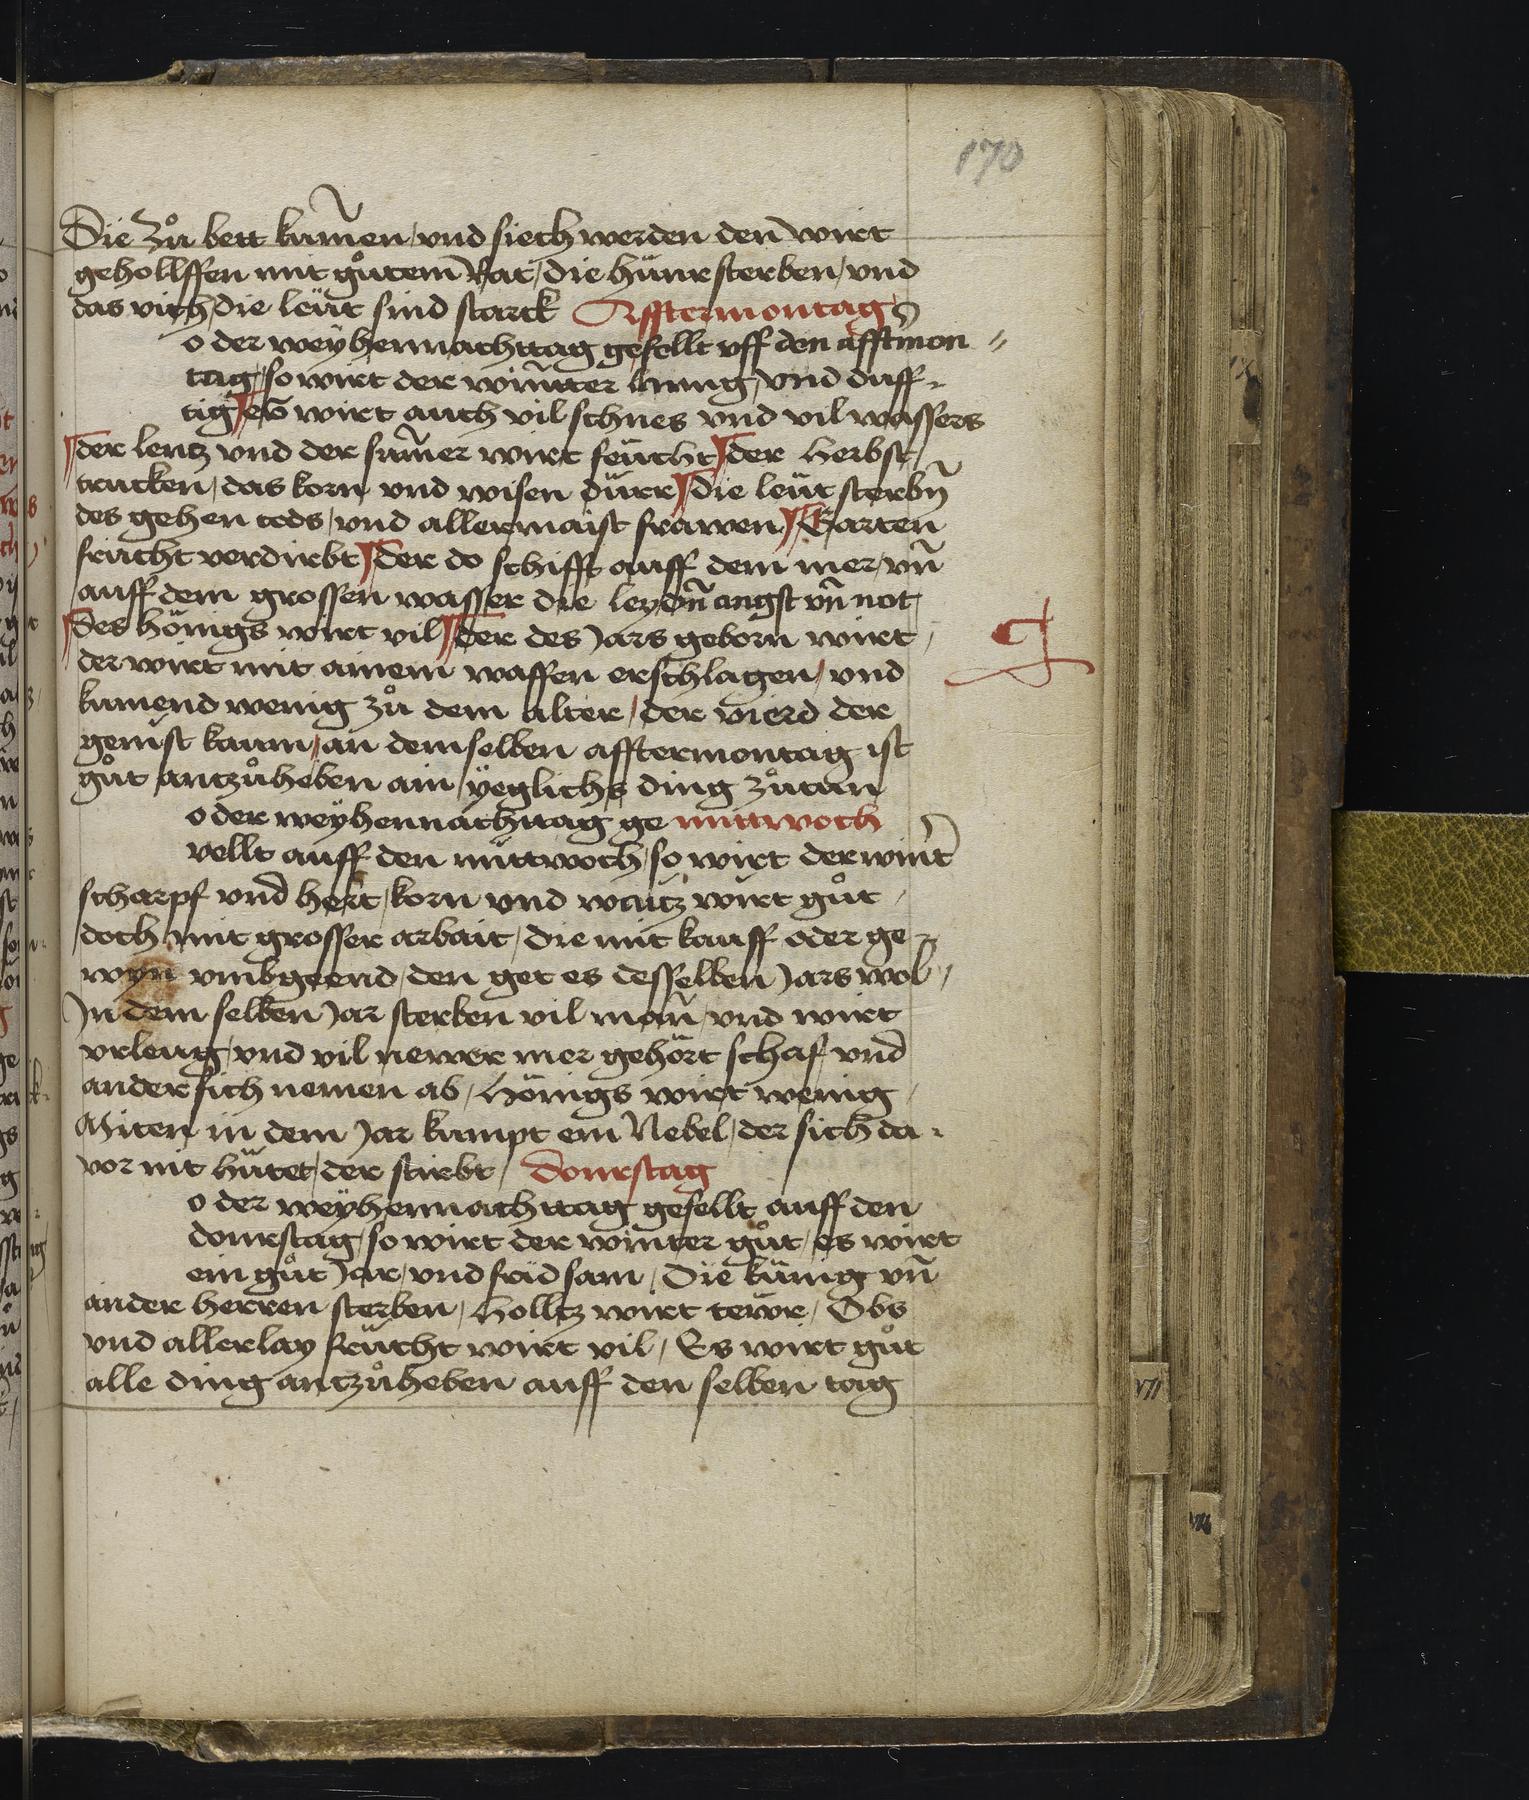 170
Die zů bett kum̃en / vnd siech werden den wirt
gehollffen mit gůtem Rat / die hünr sterben / vnd
das vich / die leüt sind starck Afftermontag
o der weÿhennachttag gefellt vff den afft̃mon
tag / so wirt der win̄tter lanng / vnd duff-
tig es wirt auch vil schnes vnd vil wassers
der lentz vnd der sum̃er wirt feücht der herbst
trucken / das korn vnd wisen dürr die leüt sterbn̄
des gehen tods / vnd allermaist frawen Garten
frücht verdirbt der do schifft auff dem mer / vn̄
auff dem grossen wasser die leydn̄ angst vn̄ not
des hönigs wirt vil der des Jars geborn wirt
der wirt mit ainem waffen erschlagen / vnd
kumend wenig zů dem alter / der vierd der
genist kaum / an demselben afftermontag ist
gůt antzůheben ain ÿeglichs ding zůtun
o der weÿhennachttag ge mittwoch
vellt auff den mittwoch / so wirt der wint̃
scharpf vnd hert / korn vnd waitz wirt gůt
doch mit grosser arbait / die mit kauff oder ge-
wyn vmbgeend / den get es desselben Jars wol
In dem selben Jar sterben vil man̄ / vnd wirt
vrleug / vnd vil newer mer gehört schaf vnd
ander fich nemen ab / hönigs wirt wenig
Miten in dem Jar kumpt ein Nebel / der sich da-
vor nit hütet / der stirbt / donrstag
o der weÿhennachttag gefellt auff den
donrstag / so wirt der winter gůt / es wirt
ein gůt Jar / vnd fridsam / Die künig vn̄
ander herren sterben / holltz wirt tewr / Obs
vnd allerlay frücht wirt vil / Es wirt gůt
alle ding antzůheben auff den selben tag
VII